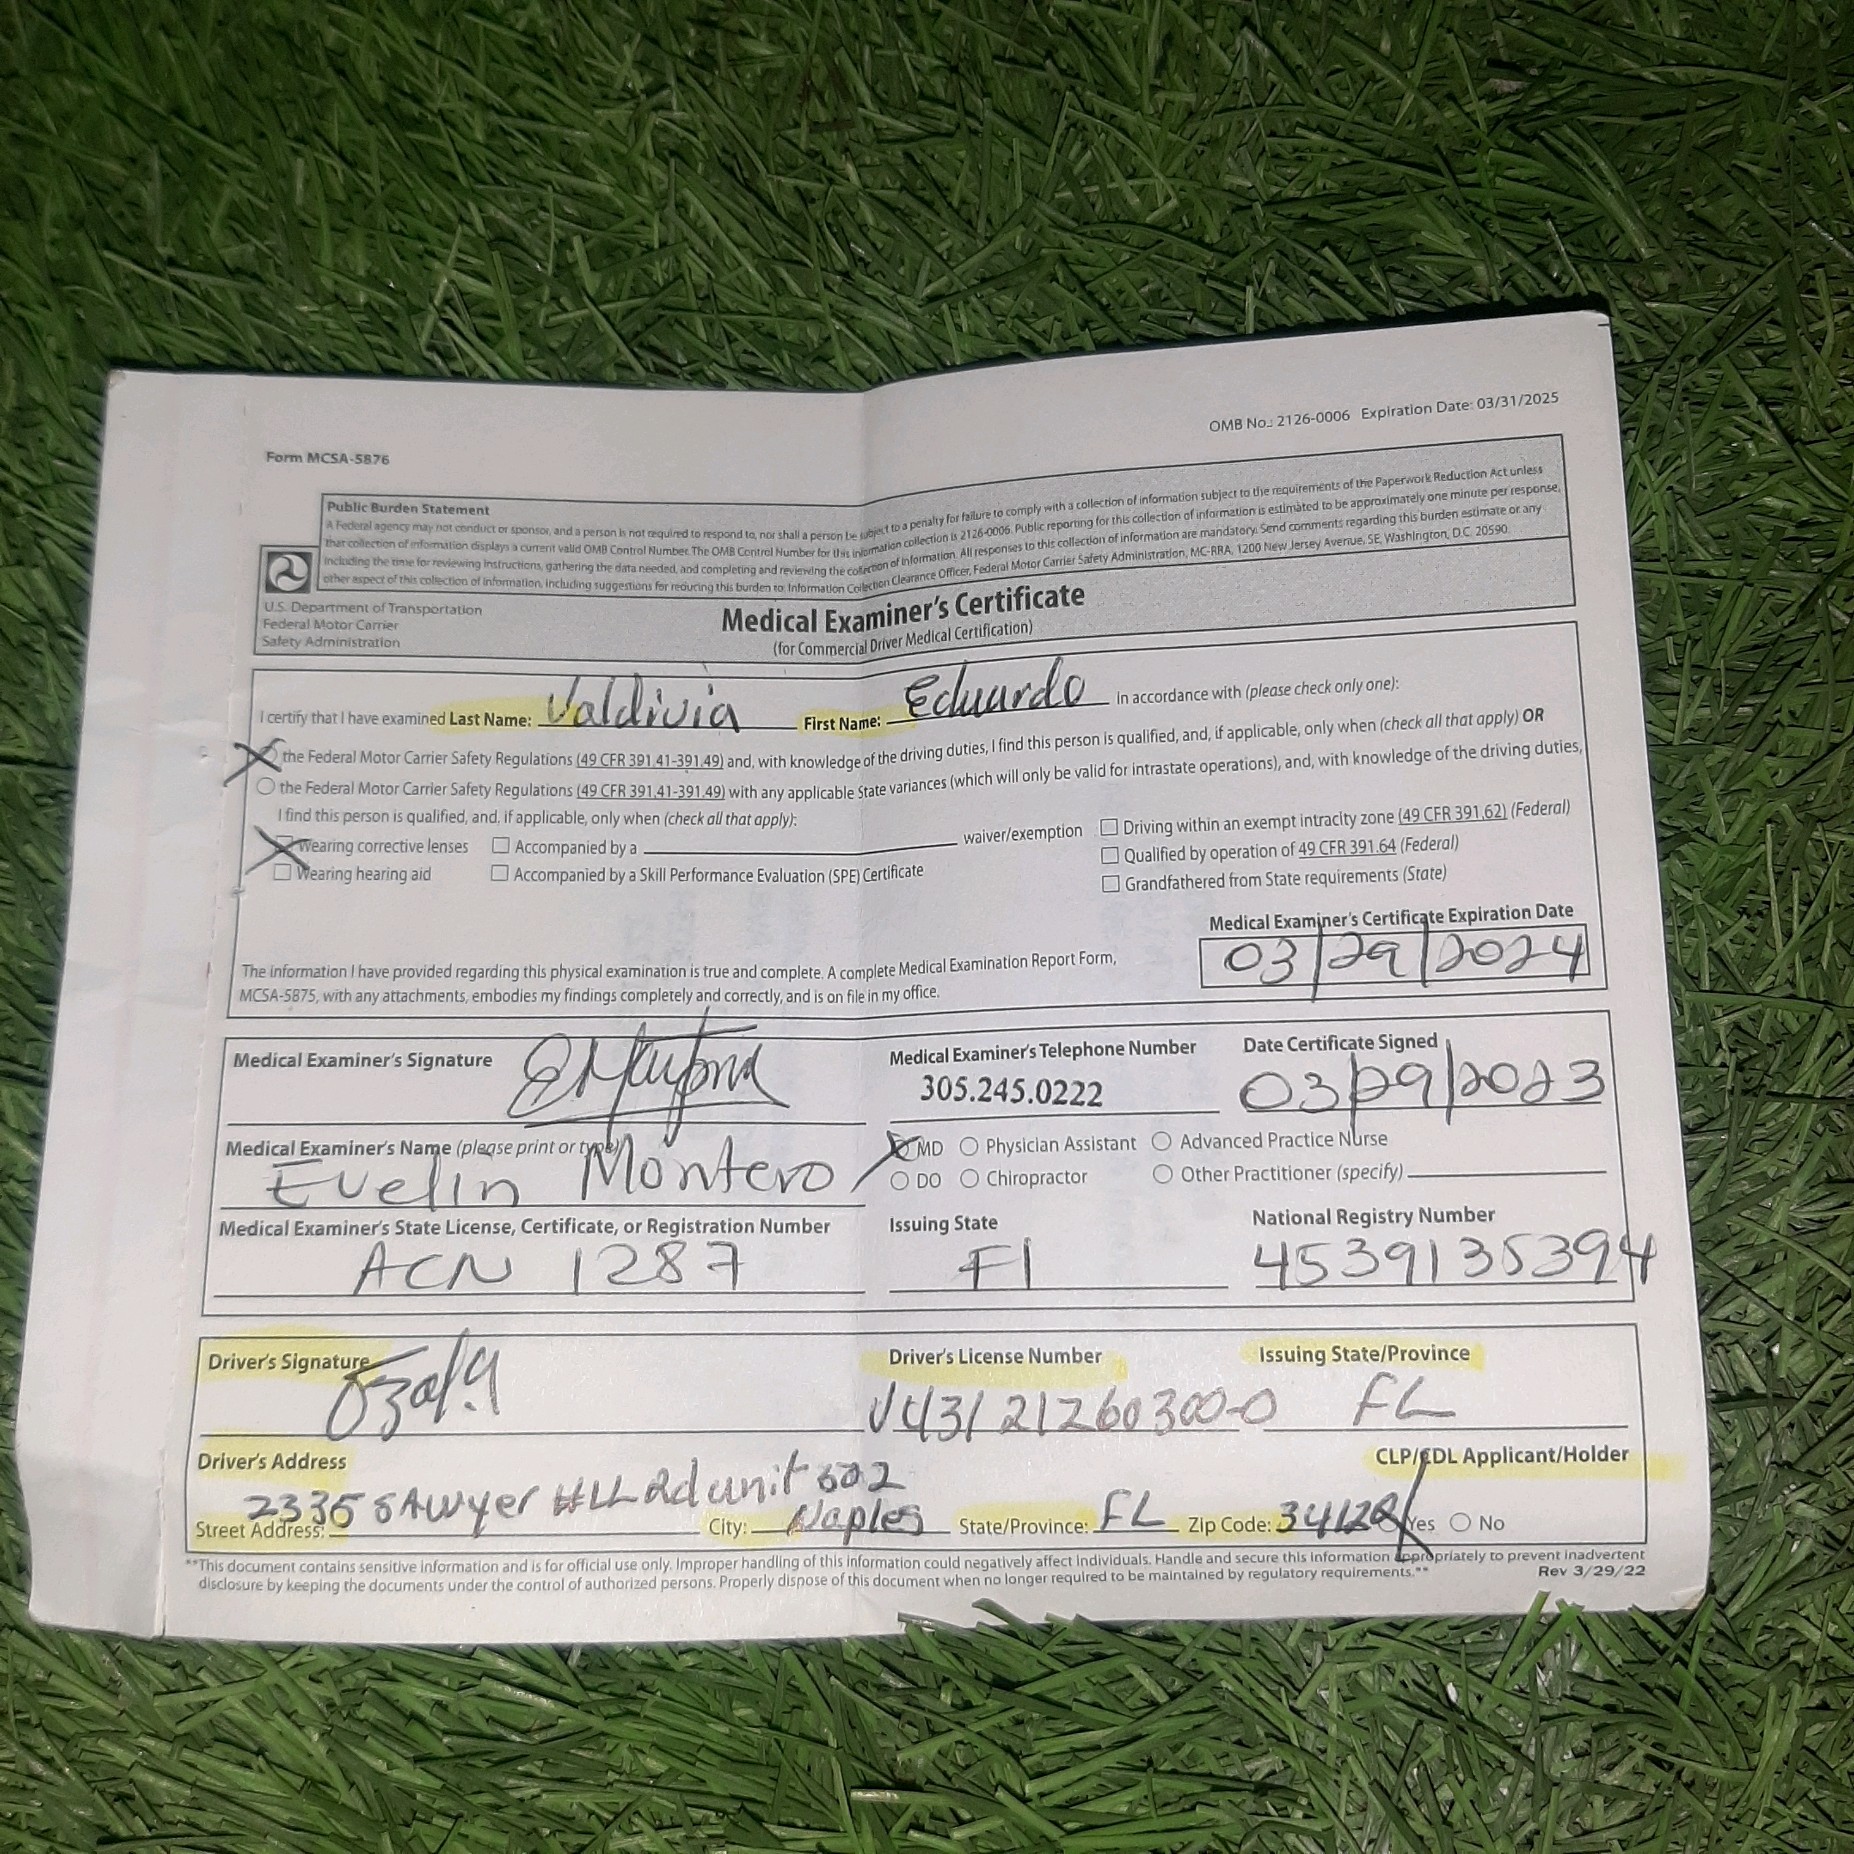 OMB No.: 2126-0006 Expiration Date: 03/31/2025
Form MCSA-5876
Public Burden Statement
A Federal agency may not conduct or sponsor, and a person is not required to respond to, nor shall a person be subject to a penalty for failure to comply with a collection of information subject to the requirements of the Paperwork Reduction Act unless
that collection of information displays a current valid OMB Control Number. The OMB Control Number for this information collection is 2126-0006. Public reporting for this collection of information is estimated to be approximately one minute per response,
including the time for reviewing instructions, gathering the data needed, and completing and reviewing the collection of information. All responses to this collection of information are mandatory. Send comments regarding this burden estimate or any
other aspect of this collection of information, including suggestions for reducing this burden to: Information Collection Clearance Officer, Federal Motor Carrier Safety Administration, MC-RRA, 1200 New Jersey Avenue, SE, Washington, D.C. 20590.
U.S. Department of Transportation
Federal Motor Carrier
Safety Administration
Medical Examiner's Certificate
(for Commercial Driver Medical Certification)
I certify that I have examined Last Name: Valdivia First Name: Eduardo in accordance with (please check only one):
the Federal Motor Carrier Safety Regulations (49 CFR 391.41-391.49) and, with knowledge of the driving duties, I find this person is qualified, and, if applicable, only when (check all that apply) OR
the Federal Motor Carrier Safety Regulations (49 CFR 391.41-391.49) with any applicable State variances (which will only be valid for intrastate operations), and, with knowledge of the driving duties,
I find this person is qualified, and, if applicable, only when (check all that apply):
Wearing corrective lenses Accompanied by a waiver/exemption Driving within an exempt intracity zone (49 CFR 391.62) (Federal)
Wearing hearing aid Accompanied by a Skill Performance Evaluation (SPE) Certificate Qualified by operation of 49 CFR 391.64 (Federal)
Grandfathered from State requirements (State)
Medical Examiner's Certificate Expiration Date
03/29/2024
The information I have provided regarding this physical examination is true and complete. A complete Medical Examination Report Form,
MCSA-5875, with any attachments, embodies my findings completely and correctly, and is on file in my office.
Medical Examiner's Signature Medical Examiner's Telephone Number Date Certificate Signed
305.245.0222 03/29/2023
Medical Examiner's Name (please print or type) MD Physician Assistant Advanced Practice Nurse
Evelin Montero DO Chiropractor Other Practitioner (specify)
Medical Examiner's State License, Certificate, or Registration Number Issuing State National Registry Number
ACN 1287 Fl 4539135394
Driver's Signature Driver's License Number Issuing State/Province
FL
Driver's Address CLP/CDL Applicant/Holder
2335 SAwyer Hill Rd unit
Street Address: City: Naples State/Province: FL Zip Code: Yes No
**This document contains sensitive information and is for official use only. Improper handling of this information could negatively affect individuals. Handle and secure this information appropriately to prevent inadvertent
disclosure by keeping the documents under the control of authorized persons. Properly dispose of this document when no longer required to be maintained by regulatory requirements.** Rev 3/29/22